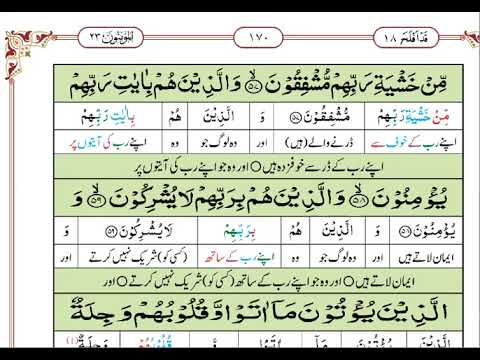 قَدْ اَفْلَحَ ١٨ ١٧٠ اَلْمُؤْمِنُوْن ٢٣
مِّنْ خَشْيَةِ رَبِّهِمْ مُّشْفِقُوْنَ ۙ﴿۵۷﴾ وَالَّذِيْنَ هُمْ بِاٰيٰتِ رَبِّهِمْ
مِّنْ خَشْيَةِ رَبِّهِمْ مُّشْفِقُوْنَ وَ الَّذِيْنَ هُمْ بِاٰيٰتِ رَبِّهِمْ
اپنے رب کے خوف سے ڈرنے والے (ہیں) اور وہ لوگ جو وہ اپنے رب کی آیتوں پر
اپنے رب کے ڈر سے خوفزدہ ہیں ○ اور وہ جو اپنے رب کی آیتوں پر
يُؤْمِنُوْنَ ۙ﴿۵۸﴾ وَالَّذِيْنَ هُمْ بِرَبِّهِمْ لَا يُشْرِكُوْنَ ۙ﴿۵۹﴾ وَ
يُؤْمِنُوْنَ وَ الَّذِيْنَ هُمْ بِرَبِّهِمْ لَا يُشْرِكُوْنَ وَ
ایمان لاتے ہیں اور وہ لوگ جو وہ اپنے رب کے ساتھ (کسی کو) شریک نہیں کرتے اور
ایمان لاتے ہیں ○ اور وہ جو اپنے رب کے ساتھ (کسی کو) شریک نہیں کرتے ○ اور
الَّذِيْنَ يُؤْتُوْنَ مَاۤ اٰتَوْا وَّ قُلُوْبُهُمْ وَجِلَةٌ
الَّذِيْنَ يُؤْتُوْنَ مَاۤ اٰتَوْا وَّ قُلُوْبُهُمْ وَجِلَةٌ